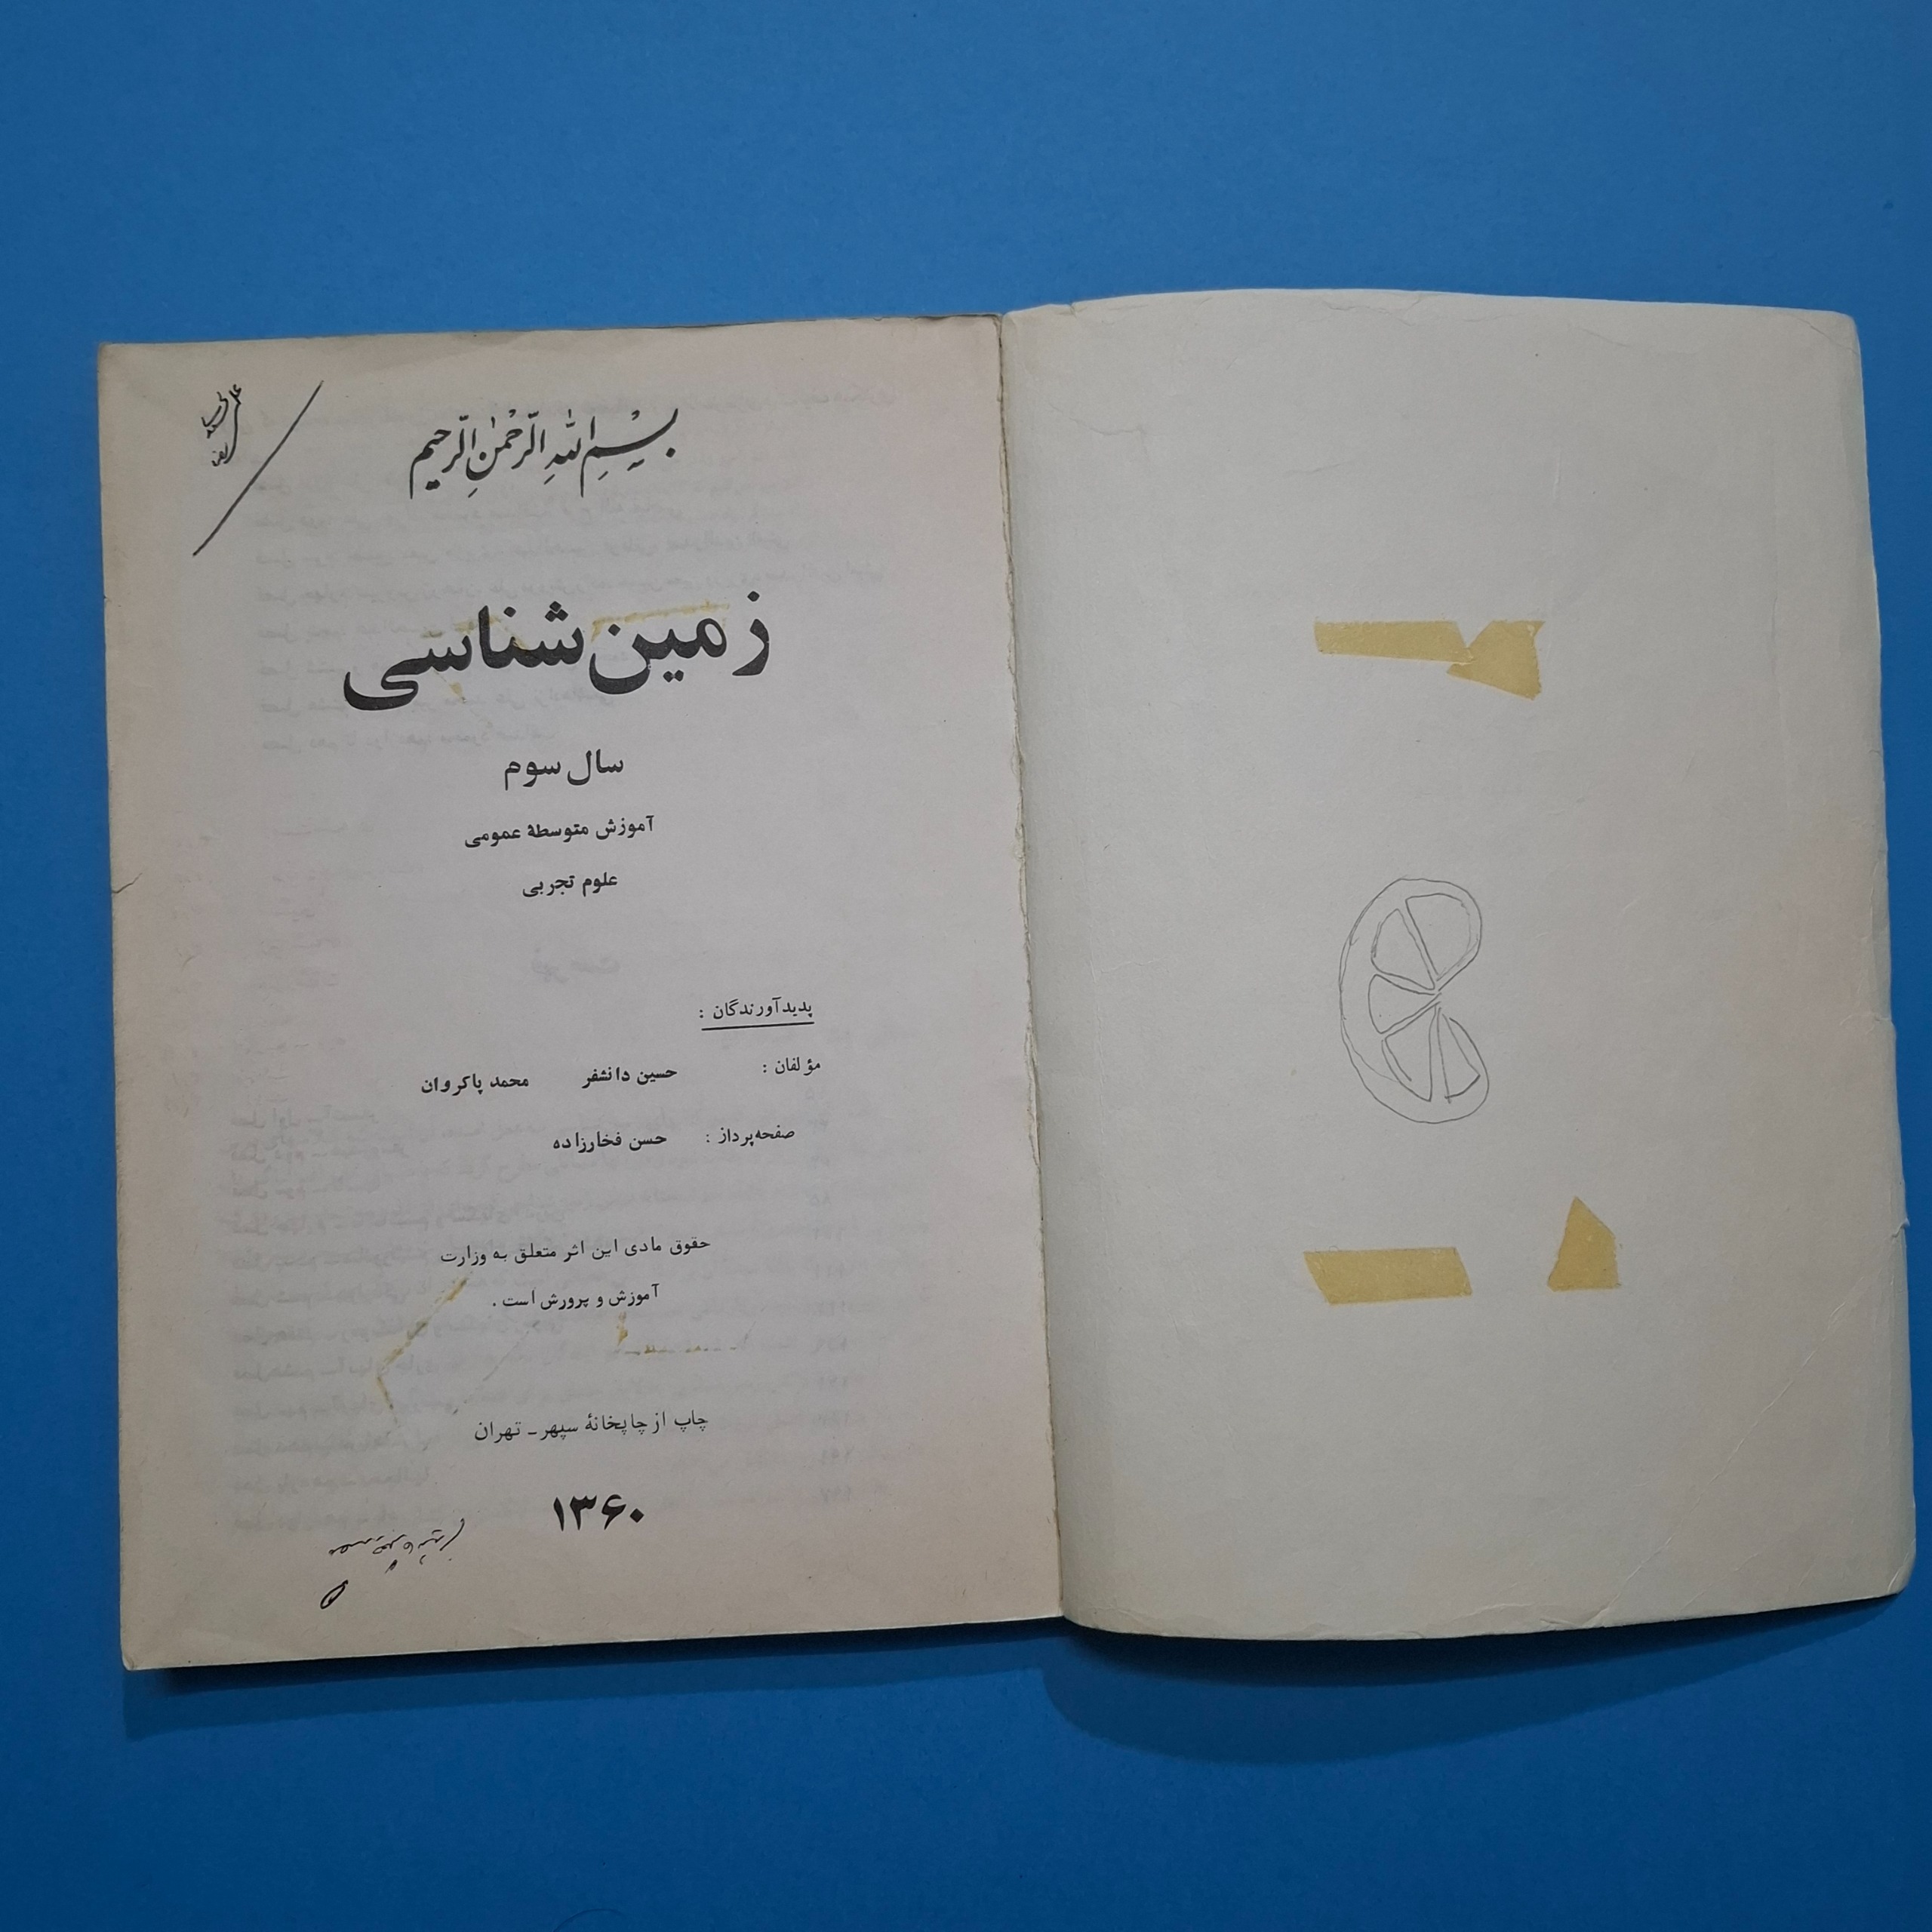 بِسْمِ اللهِ الرَّحْمٰنِ الرَّحيم
زمین‌شناسی
سال سوم
آموزش متوسطهٔ عمومی
علوم تجربی
پدیدآورندگان :
مؤلفان : حسین دانشفر محمد پاکروان
صفحه‌پرداز : حسن فخارزاده
حقوق مادی این اثر متعلق به وزارت
آموزش و پرورش است .
چاپ از چاپخانهٔ سپهر ـ تهران
۱۳۶۰